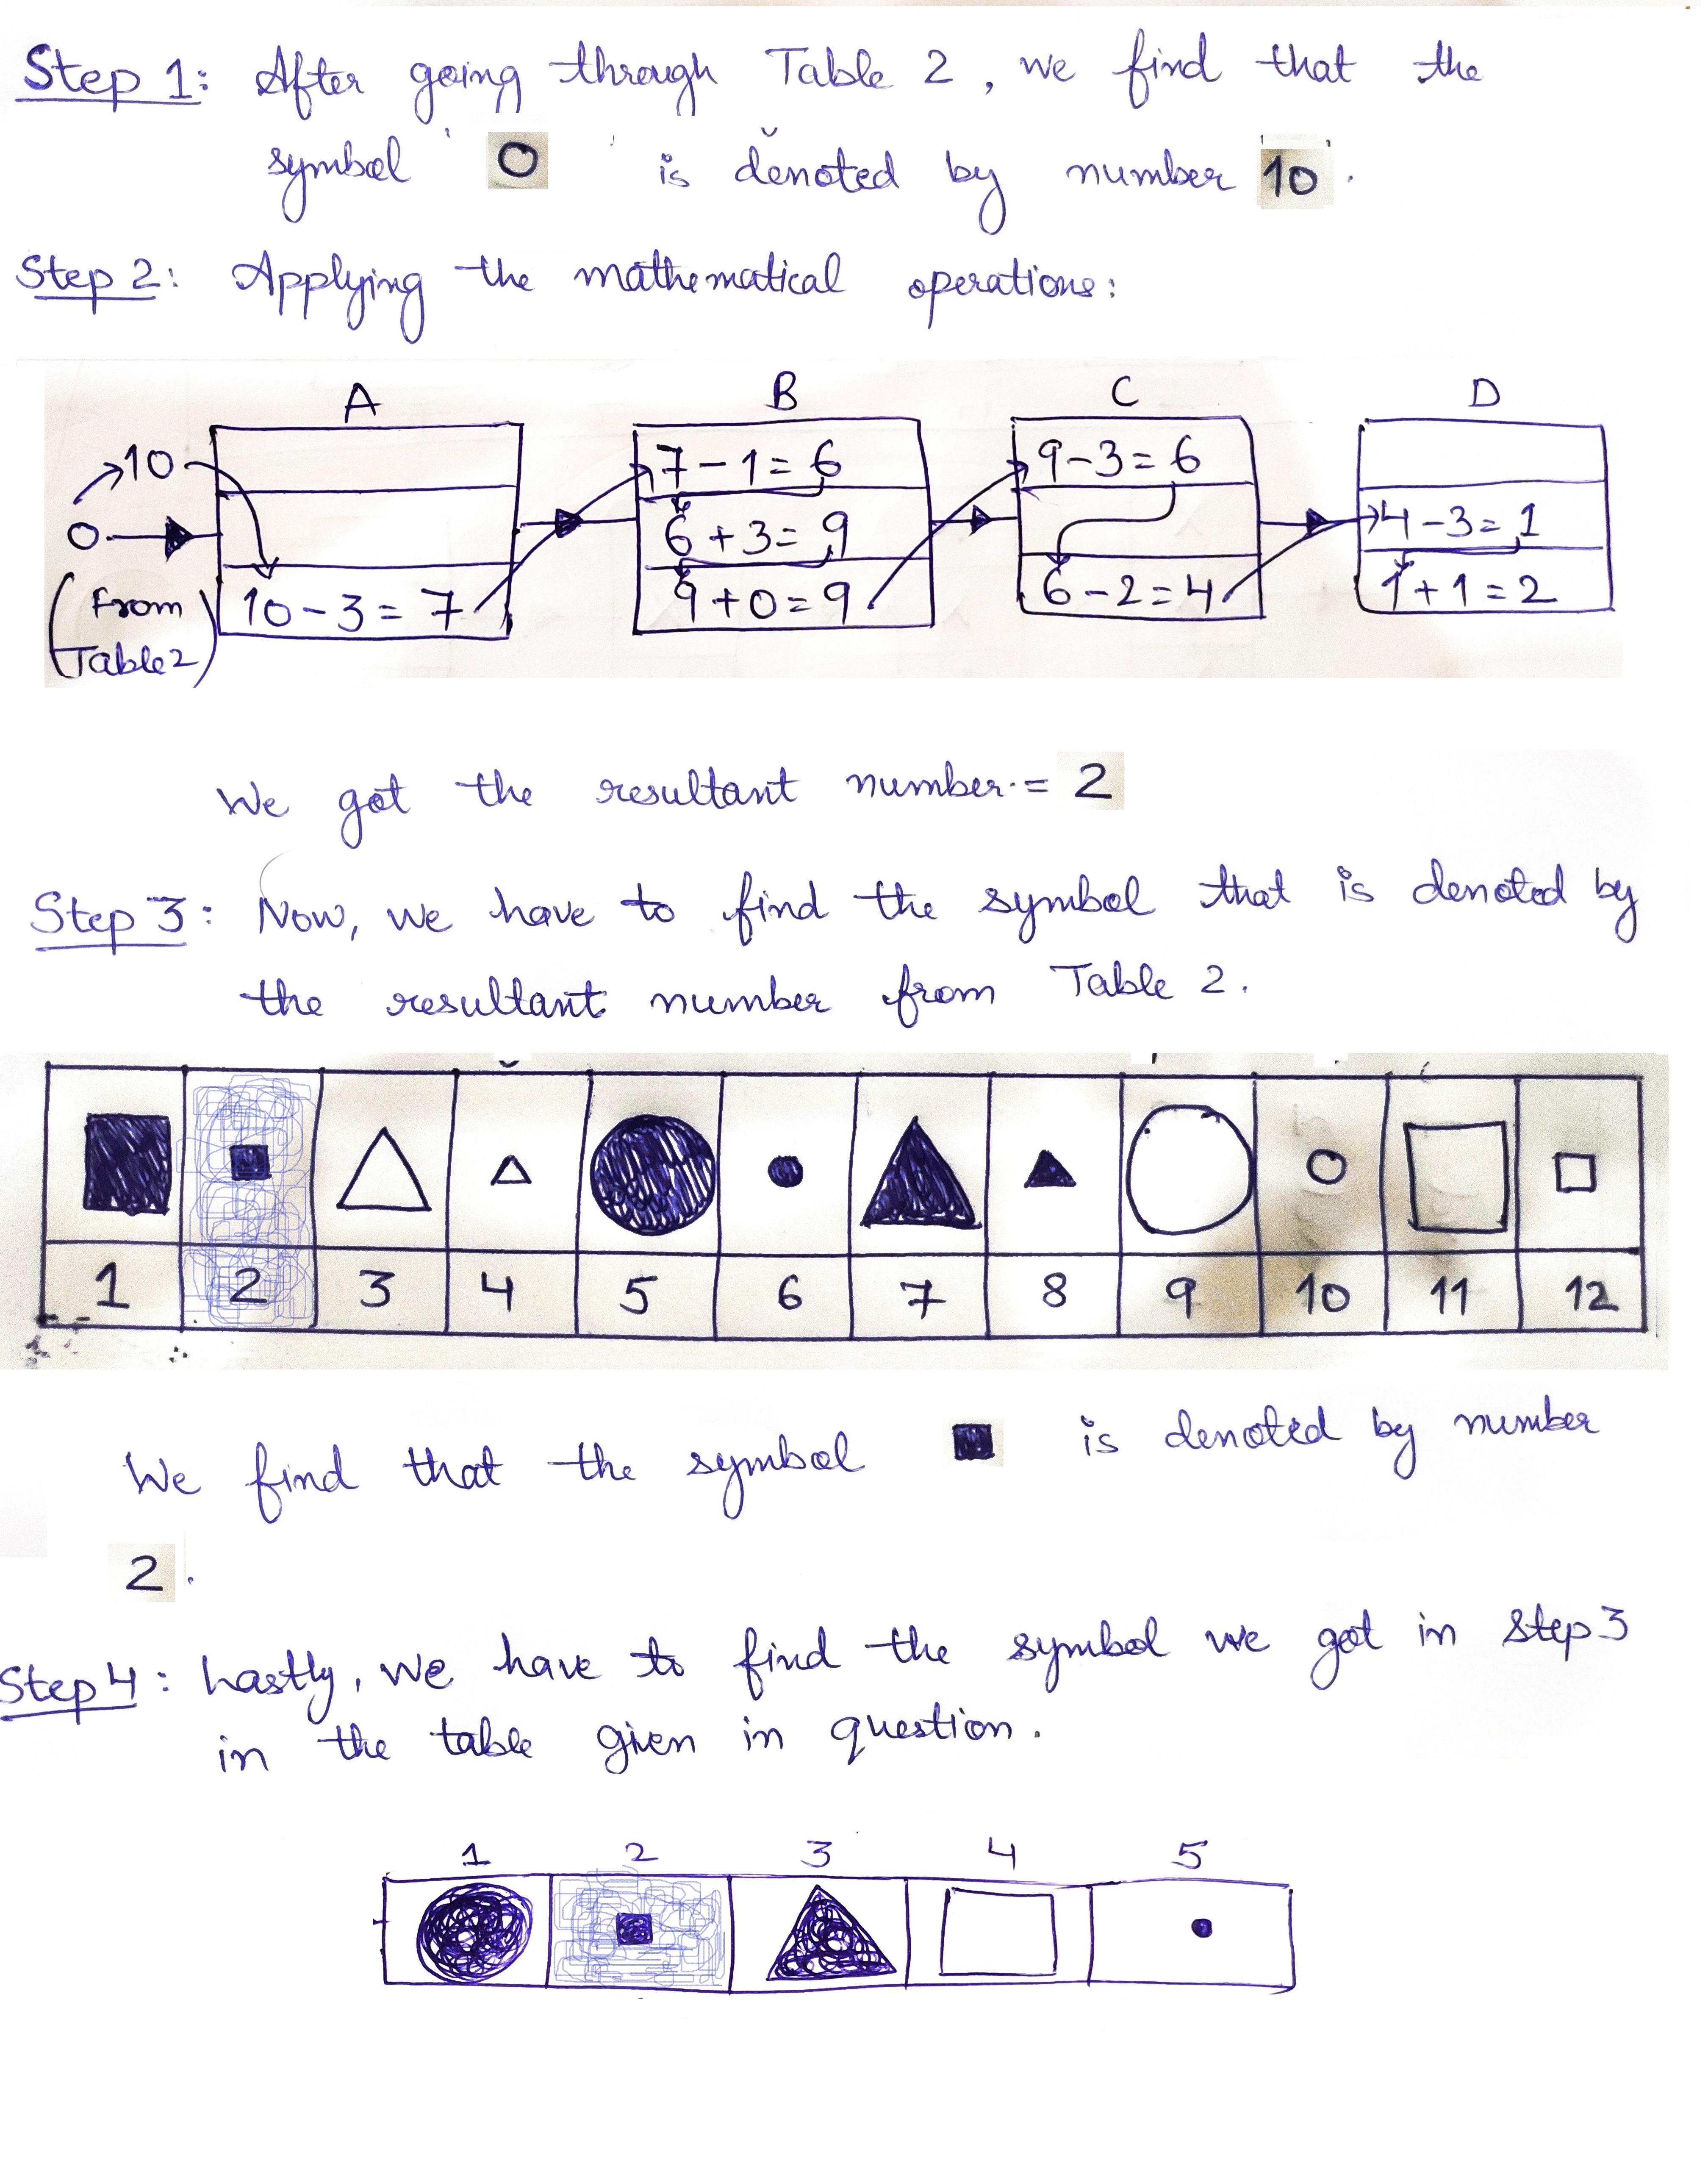 Step 1: After going through Table 2, we find that the
symbol ' O ' is denoted by number '10'.
Step 2: Applying the mathematical operations:
A B C D
10
O
(From
Table 2)
10 - 3 = 7
7 - 1 = 6
6 + 3 = 9
9 + 0 = 9
9 - 3 = 6
6 - 2 = 4
4 - 3 = 1
1 + 1 = 2
We got the resultant number = 2
Step 3: Now, we have to find the symbol that is denoted by
the resultant number from Table 2.
1 2 3 4 5 6 7 8 9 10 11 12
We find that the symbol is denoted by number
2.
Step 4: Lastly, we have to find the symbol we got in step 3
in the table given in question.
1 2 3 4 5